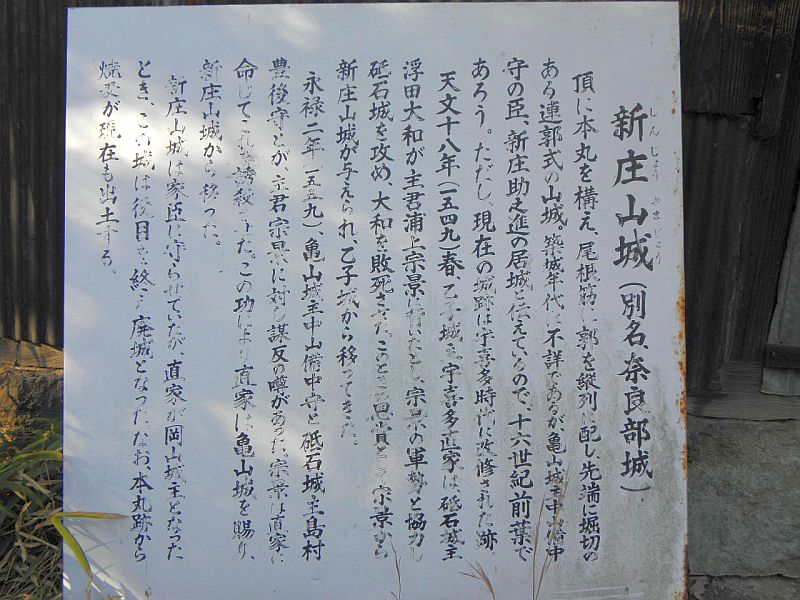 新庄山城(別名、奈良部城)
しんじょうやまじょう
頂に本丸を構え、尾根筋に郭を縦列に配し先端に堀切の
ある連郭式の山城。築城年代は不詳であるが、亀山城主中山備中
守の臣、新庄助之進の居城と伝えているので、十六世紀前葉で
あろう。ただし、現在の城跡は宇喜多時代に改修された跡。
天文十八年(一五四九)春、乙子城主宇喜多直家は、砥石城主
浮田大和が主君浦上宗景に背いたとし、宗景の軍勢と協力し
砥石城を攻め、大和を敗死させた。このときの恩賞として宗景から
新庄山城が与えられ、乙子城から移ってきた。
永禄二年(一五五九)、亀山城主中山備中守と砥石城主島村
豊後守とが、主君宗景に対し謀反の噂があった。宗景は直家に
命じてこれを誘殺させた。この功により直家は亀山城を賜り、
新庄山城から移った。
新庄山城は家臣に守らせていたが、直家が岡山城主となった
とき、この城は役目を終え廃城となった。なお、本丸跡から
焼米が現在も出土する。